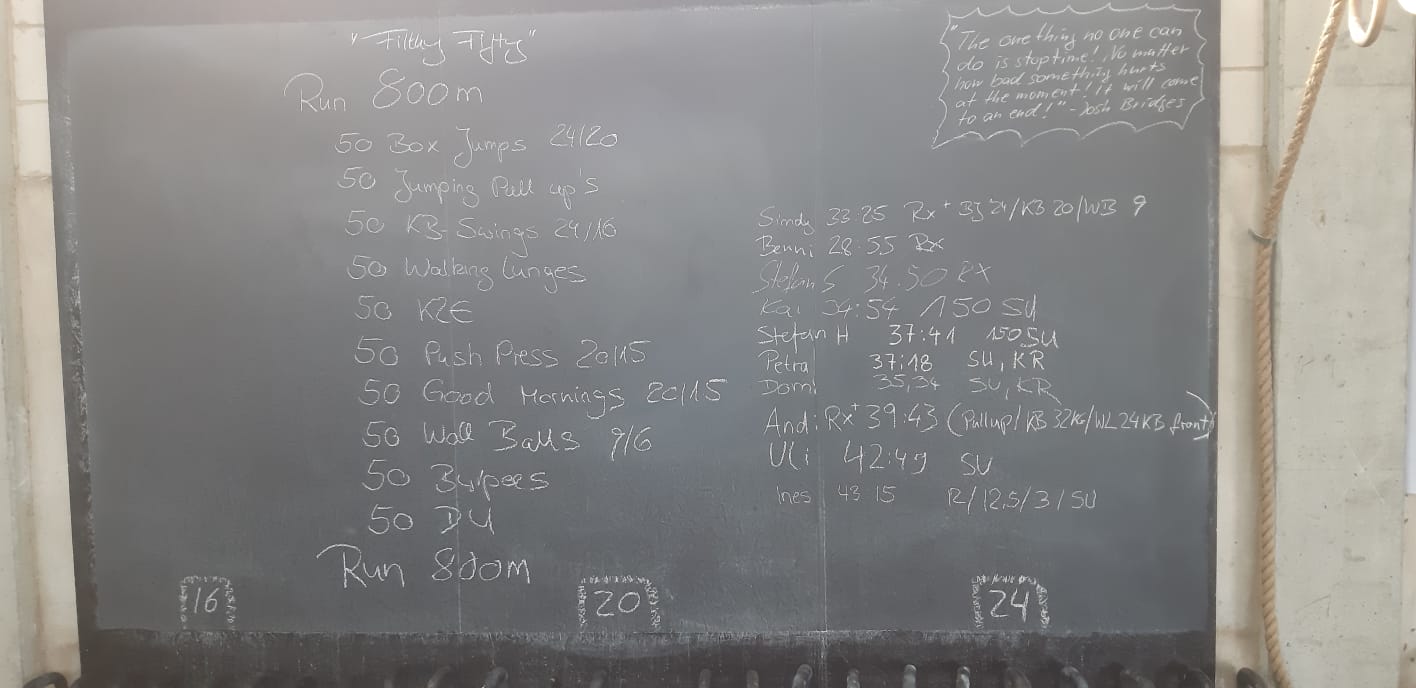 "Filthy Fifty"
Run 800m
50 Box Jumps 24/20
50 Jumping Pull up's
50 KB-Swings 24/16
50 Walking Lunges
50 K2E
50 Push Press 20/15
50 Good Mornings 20/15
50 Wall Balls 9/6
50 Burpees
50 DU
Run 800m
"The one thing no one can
do is stop time! No matter
how bad something hurts
at the moment! it will come
to an end!" - Josh Bridges
Simdy 33:25 Rx+ BJ 24/KB 20/WB 9
Benni 28:55 Rx
Stefan S 34:50 RX
Kai 34:54 150 SU
Stefan H 37:41 150 SU
Petra 37:18 SU, KR
Domi 35,34 SU, KR
Andi Rx+ 39:43 (Pullup/KB 32KG/WL 24KB front)
Uli 42:49 SU
Ines 43 15 R/12,5/3/SU
16
20
24